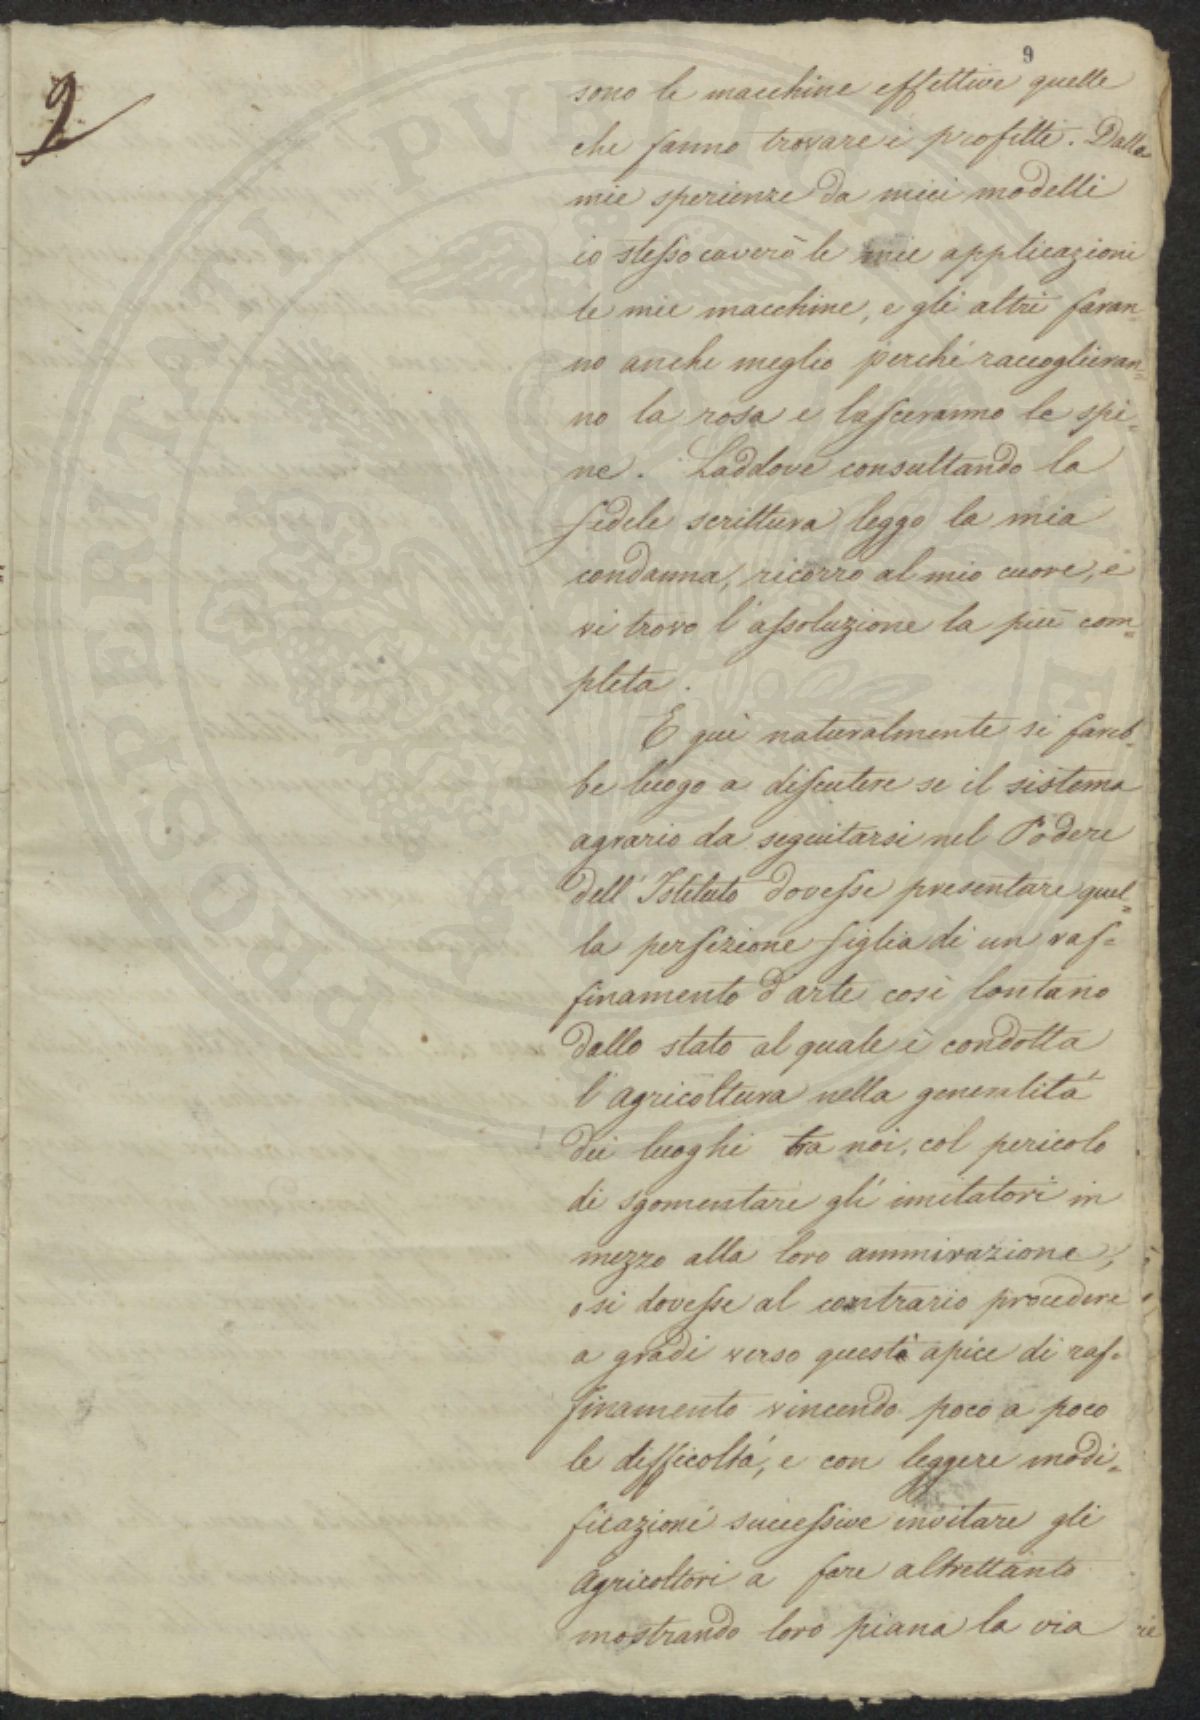 9
9
sono le macchine effettive quelle
che fanno trovare i profitti. Dalle
mie sperienze da miei modelli
io stesso caverò le mie applicazioni
le mie macchine, e gli altri faran=
no anche meglio perché raccoglieran=
no la rosa e lasceranno le spi=
ne. Laddove consultando la
fedele scrittura leggo la mia
condanna, ricorro al mio cuore, e
vi trovo l'assoluzione la più com=
pleta.
E quì naturalmente si fareb=
be luogo a discutere se il sistema
agrario da seguitarsi nel Podere
dell'Istituto dovesse presentare quel=
la perfezione figlia di un raf=
finamento d'arte così lontano
dallo stato al quale è condotta
l'agricoltura nella generalità
dei luoghi tra noi, col pericolo
di sgomentare gli imitatori in
mezzo alla loro ammirazione,
o si dovesse al contrario procedere
a gradi verso questo apice di raf=
finamento vincendo poco a poco
le difficoltà, e con leggere modi=
ficazioni successive invitare gli
agricoltori a fare altrettanto
mostrando loro piana la via
PROSPERITATI PVBLICAE